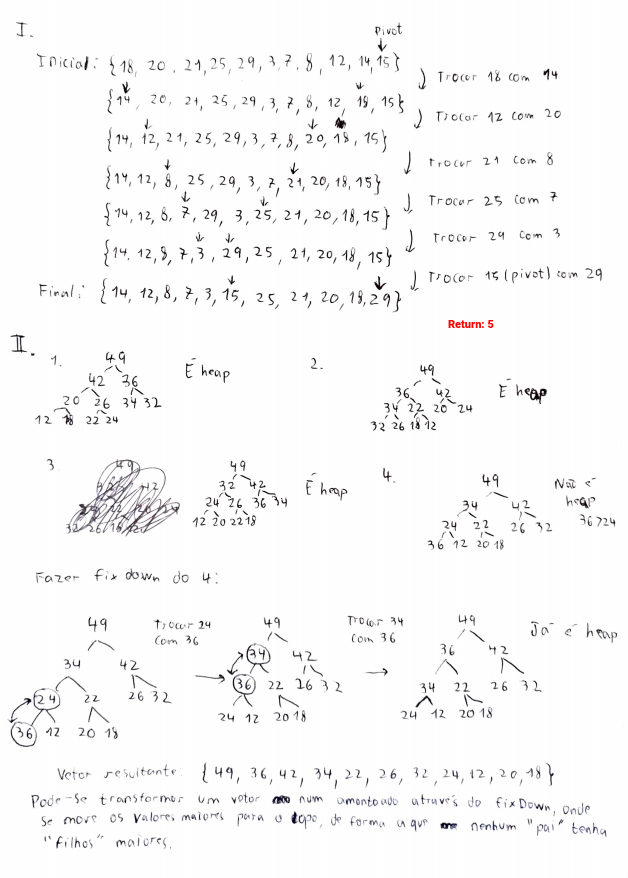 I.
pivot
Inicial: {18, 20, 21, 25, 29, 3, 7, 8, 12, 14, 15}
Trocar 18 com 14
{14, 20, 21, 25, 29, 3, 7, 8, 12, 18, 15}
Trocar 12 com 20
{14, 12, 21, 25, 29, 3, 7, 8, 20, 18, 15}
Trocar 21 com 8
{14, 12, 8, 25, 29, 3, 7, 21, 20, 18, 15}
Trocar 25 com 7
{14, 12, 8, 7, 29, 3, 25, 21, 20, 18, 15}
Trocar 29 com 3
{14, 12, 8, 7, 3, 29, 25, 21, 20, 18, 15}
Trocar 15 (pivot) com 29
Final: {14, 12, 8, 7, 3, 15, 25, 21, 20, 18, 29}
Return: 5
II.
1.
49
42 36
20 26 34 32
12 18 22 24
É heap
2.
49
36 42
34 22 20 24
32 26 18 12
É heap
3.
49
32 42
24 26 36 34
12 20 22 18
É heap
4.
49
34 42
24 22 26 32
36 12 20 18
Não é
heap
36>24
Fazer fix down do 4:
49
34 42
24 22 26 32
36 12 20 18
Trocar 24
com 36
49
34 42
36 22 26 32
24 12 20 18
Trocar 34
com 36
49
36 42
34 22 26 32
24 12 20 18
Já é heap
Vetor resultante: {49, 36, 42, 34, 22, 26, 32, 24, 12, 20, 18}
Pode-se transformar um vetor num amontoado através do fixDown, onde
se move os valores maiores para o topo, de forma a que nenhum "pai" tenha
"filhos" maiores.